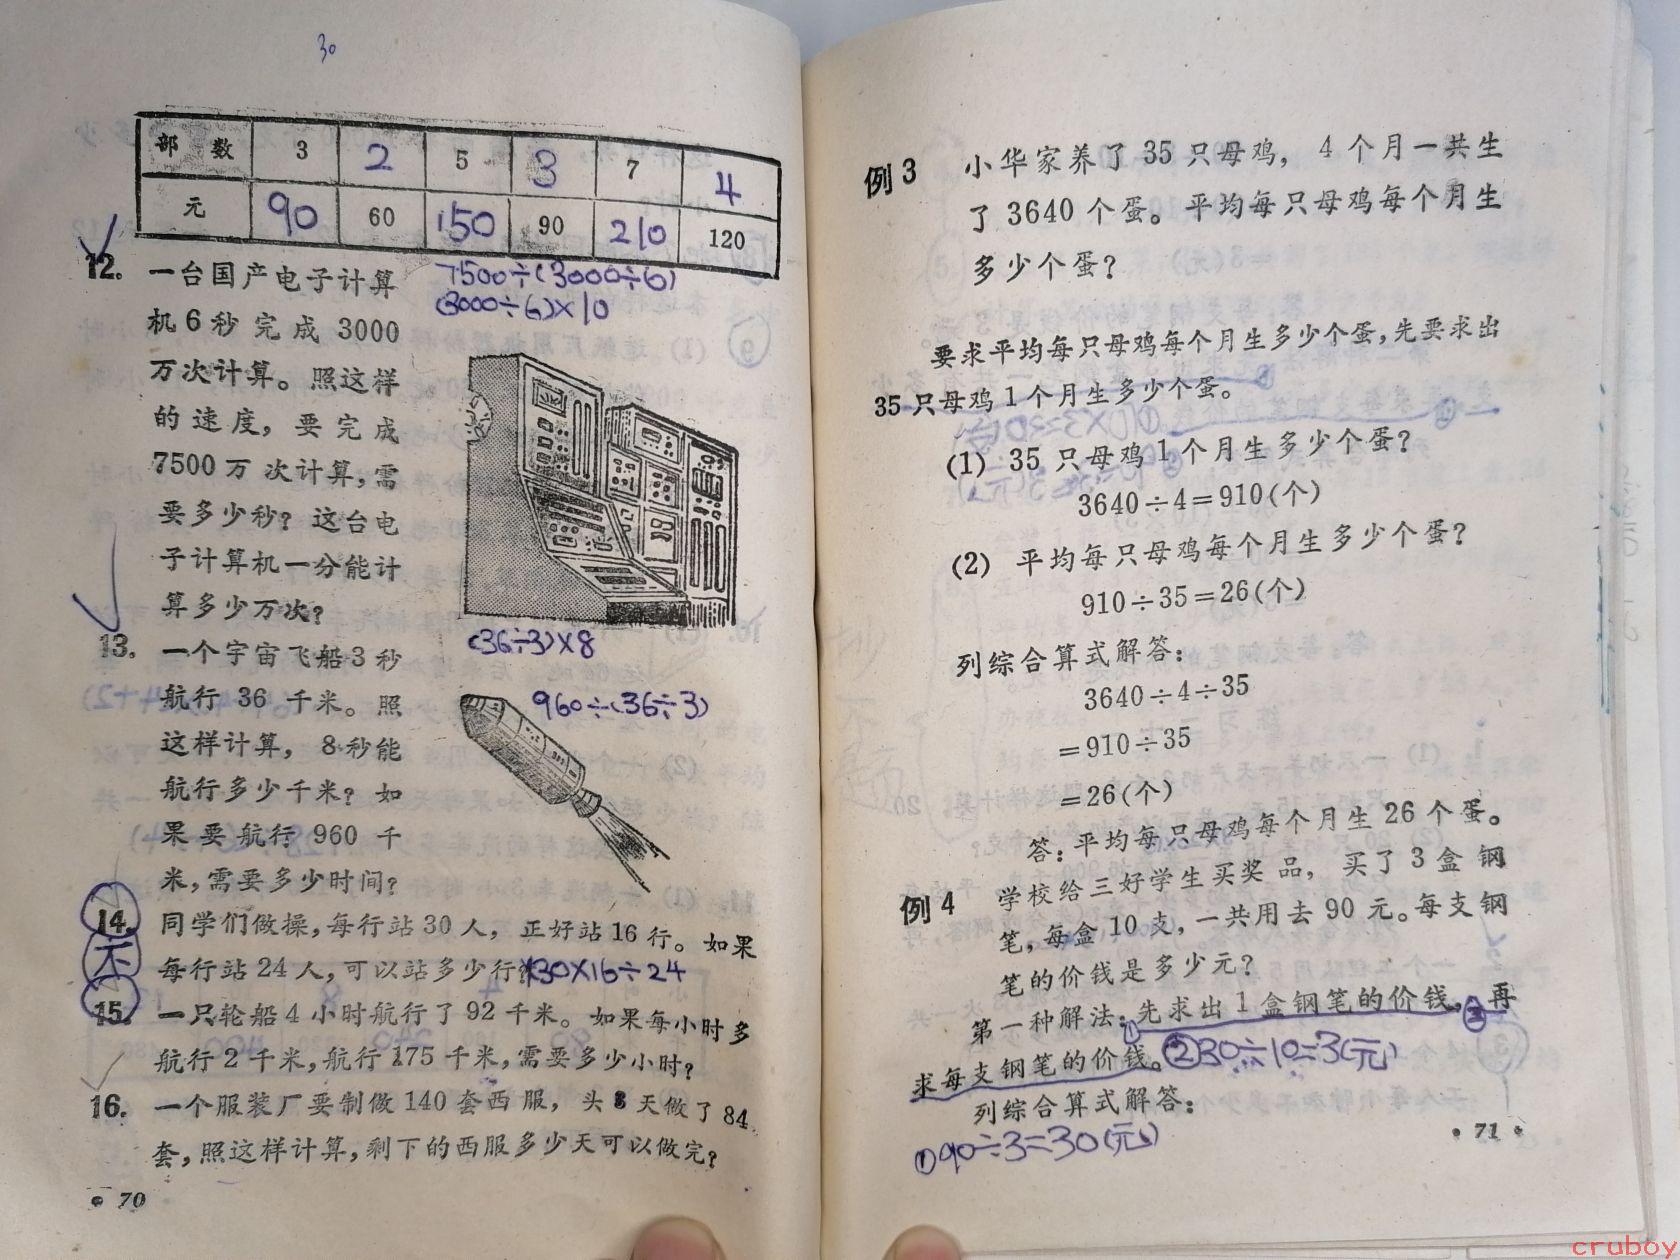 30
部 数 3 2 5 3 7 4
元 90 60 150 90 210 120
12. 一台国产电子计算
机6秒完成3000
万次计算。照这样
的速度，要完成
7500万次计算，需
要多少秒？这台电
子计算机一分能计
算多少万次？
7500÷(3000÷6)
(3000÷6)×10
13. 一个宇宙飞船3秒
航行36千米。照
这样计算，8秒能
航行多少千米？如
果要航行960千
米，需要多少时间？
(36÷3)×8
960÷(36÷3)
14. 同学们做操，每行站30人，正好站16行。如果
每行站24人，可以站多少行？30×16÷24
15. 一只轮船4小时航行了92千米。如果每小时多
航行2千米，航行175千米，需要多少小时？
16. 一个服装厂要制做140套西服，头3天做了84
套，照这样计算，剩下的西服多少天可以做完？
• 70
例3 小华家养了35只母鸡，4个月一共生
了3640个蛋。平均每只母鸡每个月生
多少个蛋？
要求平均每只母鸡每个月生多少个蛋，先要求出
35只母鸡1个月生多少个蛋。
(1) 35只母鸡1个月生多少个蛋？
3640÷4=910(个)
(2) 平均每只母鸡每个月生多少个蛋？
910÷35=26(个)
列综合算式解答：
3640÷4÷35
=910÷35
=26(个)
答：平均每只母鸡每个月生26个蛋。
例4 学校给三好学生买奖品，买了3盒钢
笔，每盒10支，一共用去90元。每支钢
笔的价钱是多少元？
第一种解法：①先求出1盒钢笔的价钱，②再
求每支钢笔的价钱。②30÷10=3(元)
列综合算式解答：
①90÷3=30(元)
• 71 •
cruboy